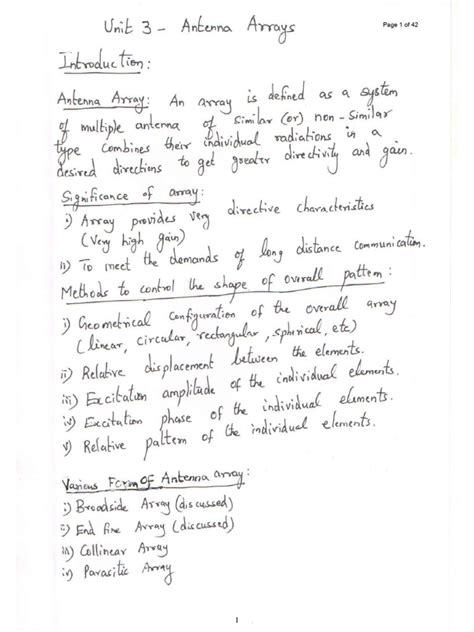 Unit 3 - Antenna Arrays
Page 1 of 42
Introduction:
Antenna Array: An array is defined as a system
of multiple antenna of similar (or) non-similar
type combines their individual radiations in a
desired directions to get greater directivity and gain.
Significance of array:
i) Array provides very directive characteristics
(Very high gain)
ii) To meet the demands of long distance communication.
Methods to control the shape of overall pattern:
i) Geometrical configuration of the overall array
(linear, circular, rectangular, spherical, etc)
ii) Relative displacement between the elements.
iii) Excitation amplitude of the individual elements.
iv) Excitation phase of the individual elements.
v) Relative pattern of the individual elements.
Various Form OF Antenna array:
i) Broadside Array (discussed)
ii) End fire Array (discussed)
iii) Collinear Array
iv) Parasitic Array
1